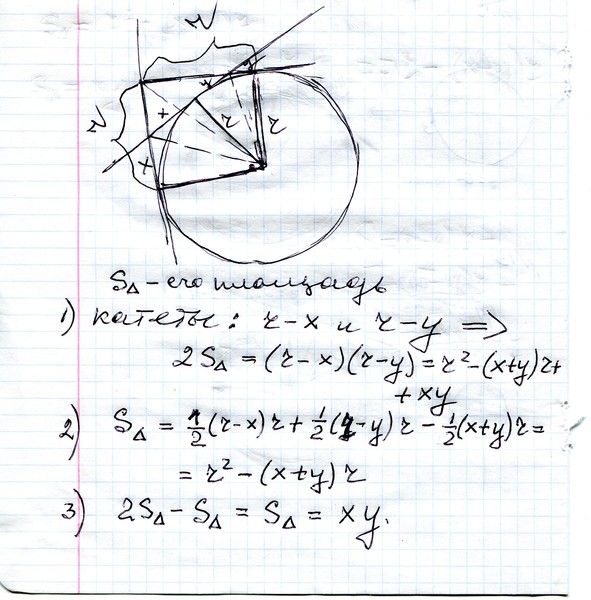 r
r
x
x
y
y
r
r
S△ - его площадь
1) катеты: r-x и r-y =>
2S△ = (r-x)(r-y) = r²-(x+y)r+
+ xy
2) S△ = 1/2(r-x)r + 1/2(r-y)r - 1/2(x+y)r =
= r² - (x+y)r
3) 2S△ - S△ = S△ = xy.